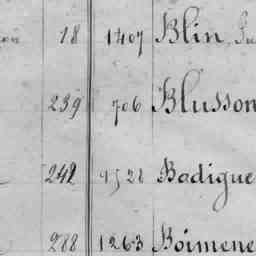 18 1407 Blin
239 706 Blusson
242 1528 Badigue
288 1263 Boimene